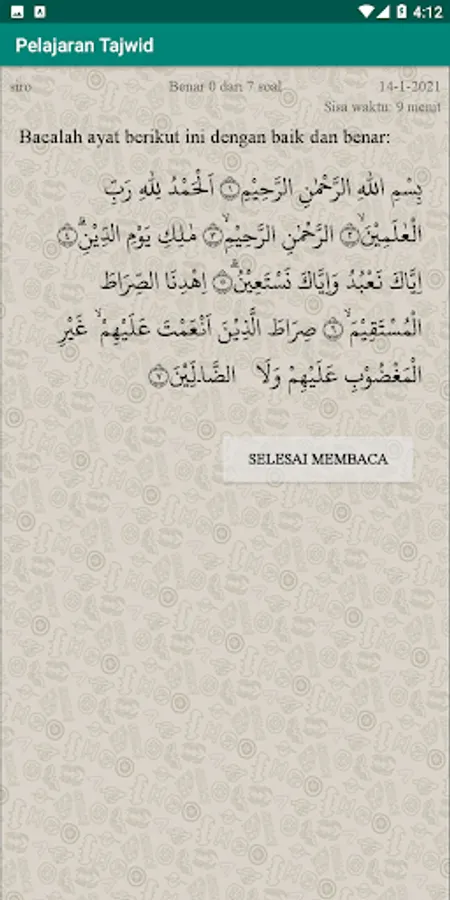 4:12
Pelajaran Tajwid
siro Benar 0 dari 7 soal 14-1-2021
Sisa waktu: 9 menit
Bacalah ayat berikut ini dengan baik dan benar:
بِسْمِ اللهِ الرَّحْمٰنِ الرَّحِيْمِ۝١ اَلْحَمْدُ لِلهِ رَبِّ
الْعٰلَمِيْنَۙ۝٢ الرَّحْمٰنِ الرَّحِيْمِۙ۝٣ مٰلِكِ يَوْمِ الدِّيْنِۗ۝٤
اِيَّاكَ نَعْبُدُ وَاِيَّاكَ نَسْتَعِيْنُۗ۝٥ اِهْدِنَا الصِّرَاطَ
الْمُسْتَقِيْمَۙ۝٦ صِرَاطَ الَّذِيْنَ اَنْعَمْتَ عَلَيْهِمْۙ غَيْرِ
الْمَغْضُوْبِ عَلَيْهِمْ وَلَا الضَّالِّيْنَ۝٧
SELESAI MEMBACA